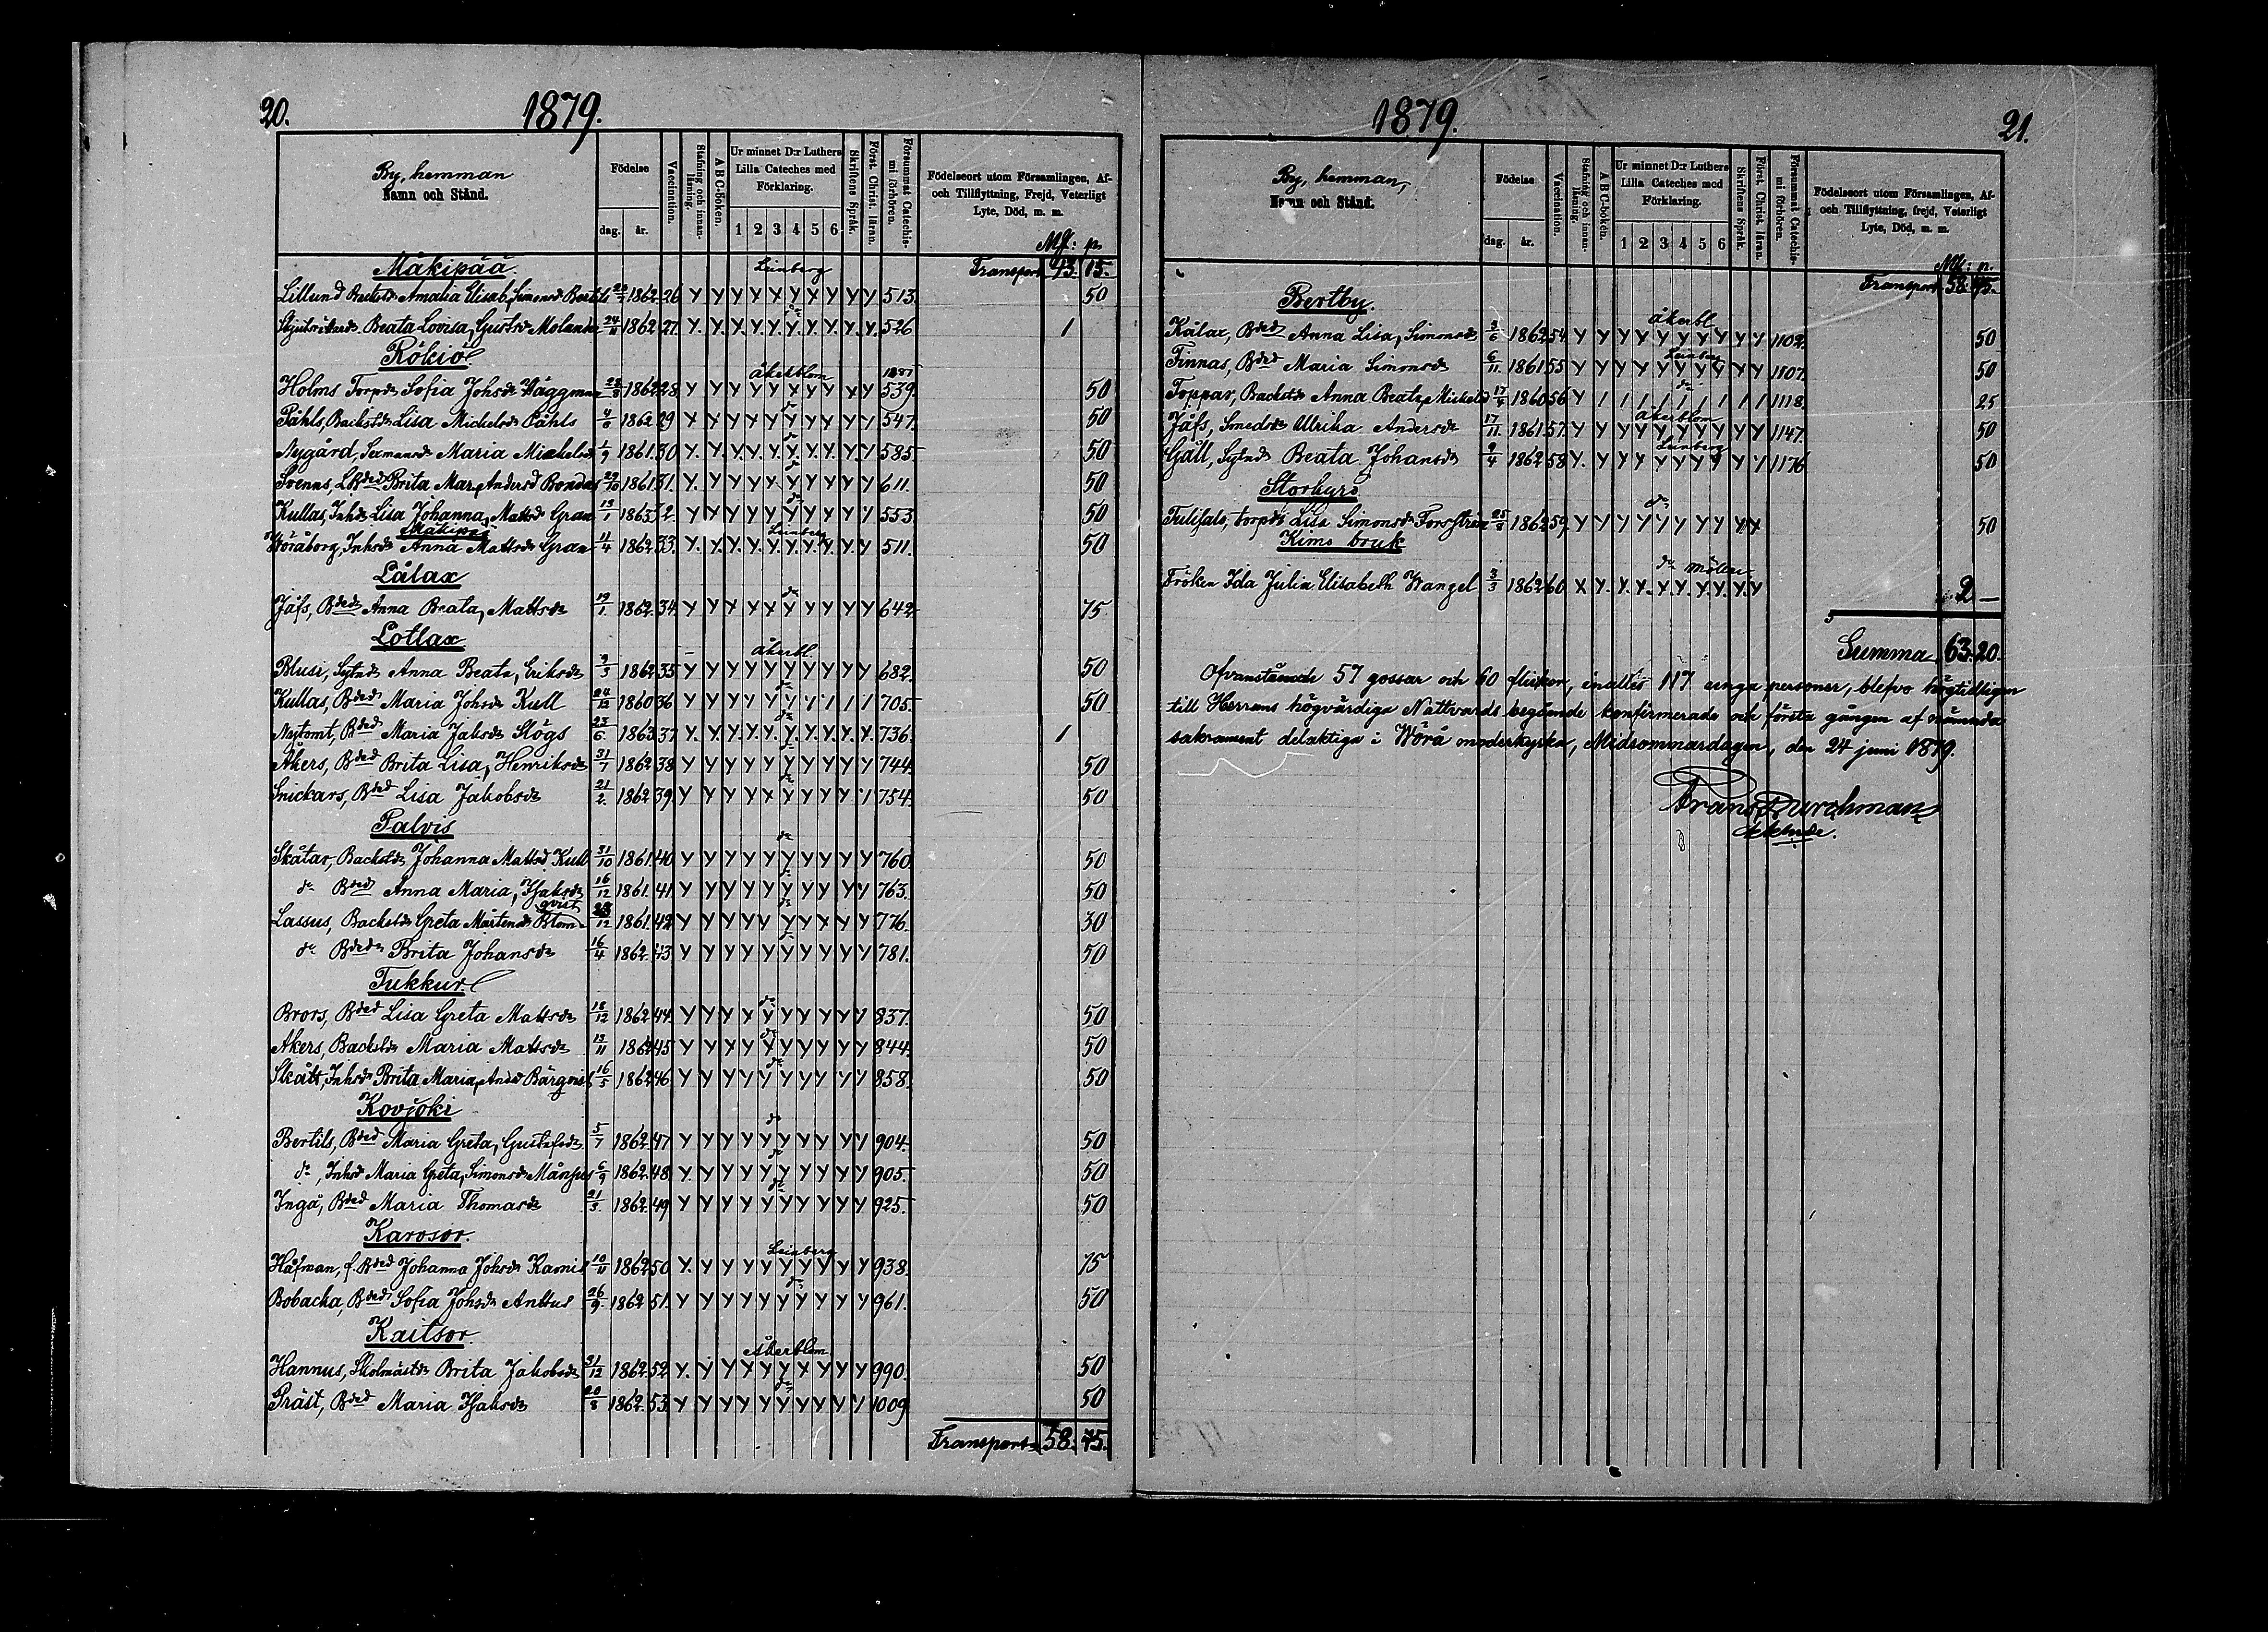 20.
1879.
By, hemman
Namn och Stånd.
Födelse
dag. år.
Vaccination.
Stafning och innan-läsning.
A B C-boken.
Ur minnet D:r Luthers Lilla Cateches med Förklaring.
1 2 3 4 5 6
Skriftens Språk.
Först. Christ. läran.
Försummat Catechis-mi förhören.
Födelseort utom Församlingen, Af- och Tillflyttning, Frejd, Veterligt Lyte, Död, m. m.
Mk: p.
Mäkipää Leinberg Transport 43. 15.
Lillund Amalia Elisab. Simonsd 1862 26 Y Y Y Y Y Y Y Y Y Y Y 513. 50
Beata Lovisa, Gustsdr Molander 24/11 1862 27. Y. Y. Y. Y. Y. Y. Y. Y. Y. Y. 526 1
Rökiö åkerblom
Holms Torpdr Sofia Johsdr Väggman 1862 28. Y Y Y Y Y Y Y Y Y Y 539. 50
Påhls, Backstdr Lisa Michelsdr Påhls 4/6 1862 29 Y Y Y Y Y Y Y Y Y Y 547. 50
Nygård, Maria Mickelsdr 1/9 1861. 30 Y. Y. Y. Y. Y. Y. Y. Y. Y. Y. 585 50
Svenns, Brita Mar. Andersd Bondas 29/10 1861 31. Y. Y Y Y Y Y Y Y Y Y 611. 50
Kullas, Inhdr Lisa Johanna, Mattsd Gran 13/1 1863 32. Y Y Y Y Y Y Y Y Y Y 553 50
Mäkipää Leinberg
Wöråborg, Inhsdr Anna Mattsdr Gran 11/4 1862 33. Y. Y. Y. Y. Y. Y. Y. Y. Y. Y 511. 50
Lålax
Jåfs, Bdedr Anna Beata, Mattsdr 19/1. 1862. 34. Y Y Y Y Y Y Y Y Y Y 642 75
Lotlax åkerbl.
Blusi, Sytndr Anna Beata, Eriksdr 9/3 1862 35 Y Y Y Y Y Y Y Y Y Y 682. 50
Kullas, Bdedr Maria Johsdr Kull 24/12 1860 36 Y Y Y Y Y Y 1 1 1 1 705. 50
Nytomt, Bdedr Maria Jaksdr Skögs 23/6. 1863. 37 Y. Y. Y. Y. Y. Y. Y. Y. Y. Y. 736. 1
Åkers, Bded Brita Lisa, Henriksdr 31/7 1862 38 Y Y Y Y Y Y Y Y Y Y 744. 50
Snickars, Bded Lisa Jakobsdr 21/2. 1862 39. Y Y Y Y Y Y Y Y Y 1 754. 50
Palvis
Skåtar, Backstdr Johanna Mattsd Kull 31/10 1861. 40 Y Y Y Y Y Y Y Y Y Y 760. 50
dr Bded Anna Maria, Isaksdr 16/12 1861. 41 Y Y Y Y Y Y Y Y Y Y 763. 50
qvist
Lassus, Backstdr Greta Mårtensdr Blom 28/12 1861. 42 Y Y Y Y Y Y Y Y Y Y 776. 30
dr Bdedr Brita Johansdr 16/4 1862. 43 Y Y Y Y Y Y Y Y Y Y 781. 50
Tukkur
Brors, Bded Lisa Greta Mattsdr 18/12 1862 44. Y Y Y Y Y Y Y Y Y Y 837. 50
Åkers, Backstdr Maria Mattsdr 13/11 1862 45 Y Y Y Y Y Y Y Y Y Y 844. 50
Skått, Inhsdr Brita Maria, Andsd Bärgqvist 16/5 1862 46 Y Y Y Y Y Y Y Y Y Y 858. 50
Kovjoki
Bertils, Bded Maria Greta, Gustafsdr 5/7 1862 47 Y Y Y Y Y Y Y Y Y Y 904. 50
dr, Inhsd Maria Greta, Simonsdr Månsus 6/9 1862. 48. Y. Y Y Y Y Y Y Y Y Y 905. 50
Ingå, Bded Maria Thomasdr 21/3. 1862. 49 Y Y Y Y Y Y Y Y Y Y 925. 50
Karvsor. Leinberg
Håfman, f. Bded Johanna Johsdr Karnis 10/11 1862 50 Y. Y Y Y Y Y Y Y Y Y 938. 75
Bobacka, Bdedr Sofia Johsdr Anttus 26/9. 1862 51. Y Y Y Y Y Y Y Y Y Y 961. 50
Kaitsor. Åkerblom
Hannus, Skolmästdr Brita Jakobsdr 31/12 1862 52 Y. Y Y Y Y Y Y Y Y Y 990. 50
Präst, Bded Maria Isaksdr 20/8 1862. 53. Y Y Y Y Y Y Y Y Y 1 1009 50
Transport 58. 45.
1879.
21.
By, hemman,
Namn och Stånd.
Födelse
dag. år.
Vaccination.
Stafning och innan-läsning.
A B C-boken.
Ur minnet D:r Luthers Lilla Cateches med Förklaring.
1 2 3 4 5 6
Skriftens Språk.
Först. Christ. läran.
Försummat Catechis-mi förhören.
Födelseort utom Församlingen, Af- och Tillflyttning, frejd, Veterligt Lyte, Död, m. m.
Mk: p.
Transport 58. 45.
Bertby. åkerbl.
Kålax, Bded Anna Lisa, Simonsdr 2/6 1862 54. Y Y Y Y Y Y Y Y Y Y 1102. 50
Finnas, Bded Maria Simonsdr 6/11. 1861 55 Y Y Y Y Y Y Y Y Y Y 1107. 50
Leinberg
Toppar, Backstdr Anna Beata, Mickelsd 17/4 1860 56 Y 1 1 1 1 1 1 1 1 1 1118. 25
åkerblom
Jåfs, Smedsdr Ullrika Andersdr 17/11. 1861 57. Y Y Y Y Y Y Y Y Y Y 1147. 50
Leinberg
Gåll, Sytndr Beata Johansdr 9/4 1862 58 Y. Y Y Y Y Y Y Y Y Y 1176 50
Storkyro
torpdr Lisa Simonsdr Forsström 25/8 1862 59. Y Y Y Y Y Y Y Y Y Y 50
Kimo bruk
Fröken Ida Julia Elisabeth Wangel 3/3 1862 60. X Y. Y. Y. Y. Y. Y. Y. Y. Y 2 —
Summa 63. 20.
Ofvanstående 57 gossar och 60 flickor, inalles 117 unga personer, blefvo högtidligen
till Herrans högvärdiga Nattvards begående konfirmerade och första gången af nämnda
sakrament delaktiga i Wörå moderkyrka, Midsommardagen, den 24 juni 1879.
Frans Durchman